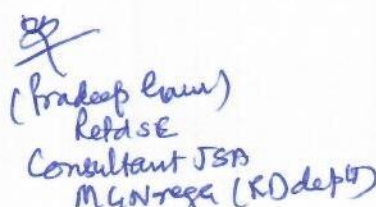 (Pradeep Gaur)
Retd SE
Consultant JSA
MGN-rega (RD deptt)